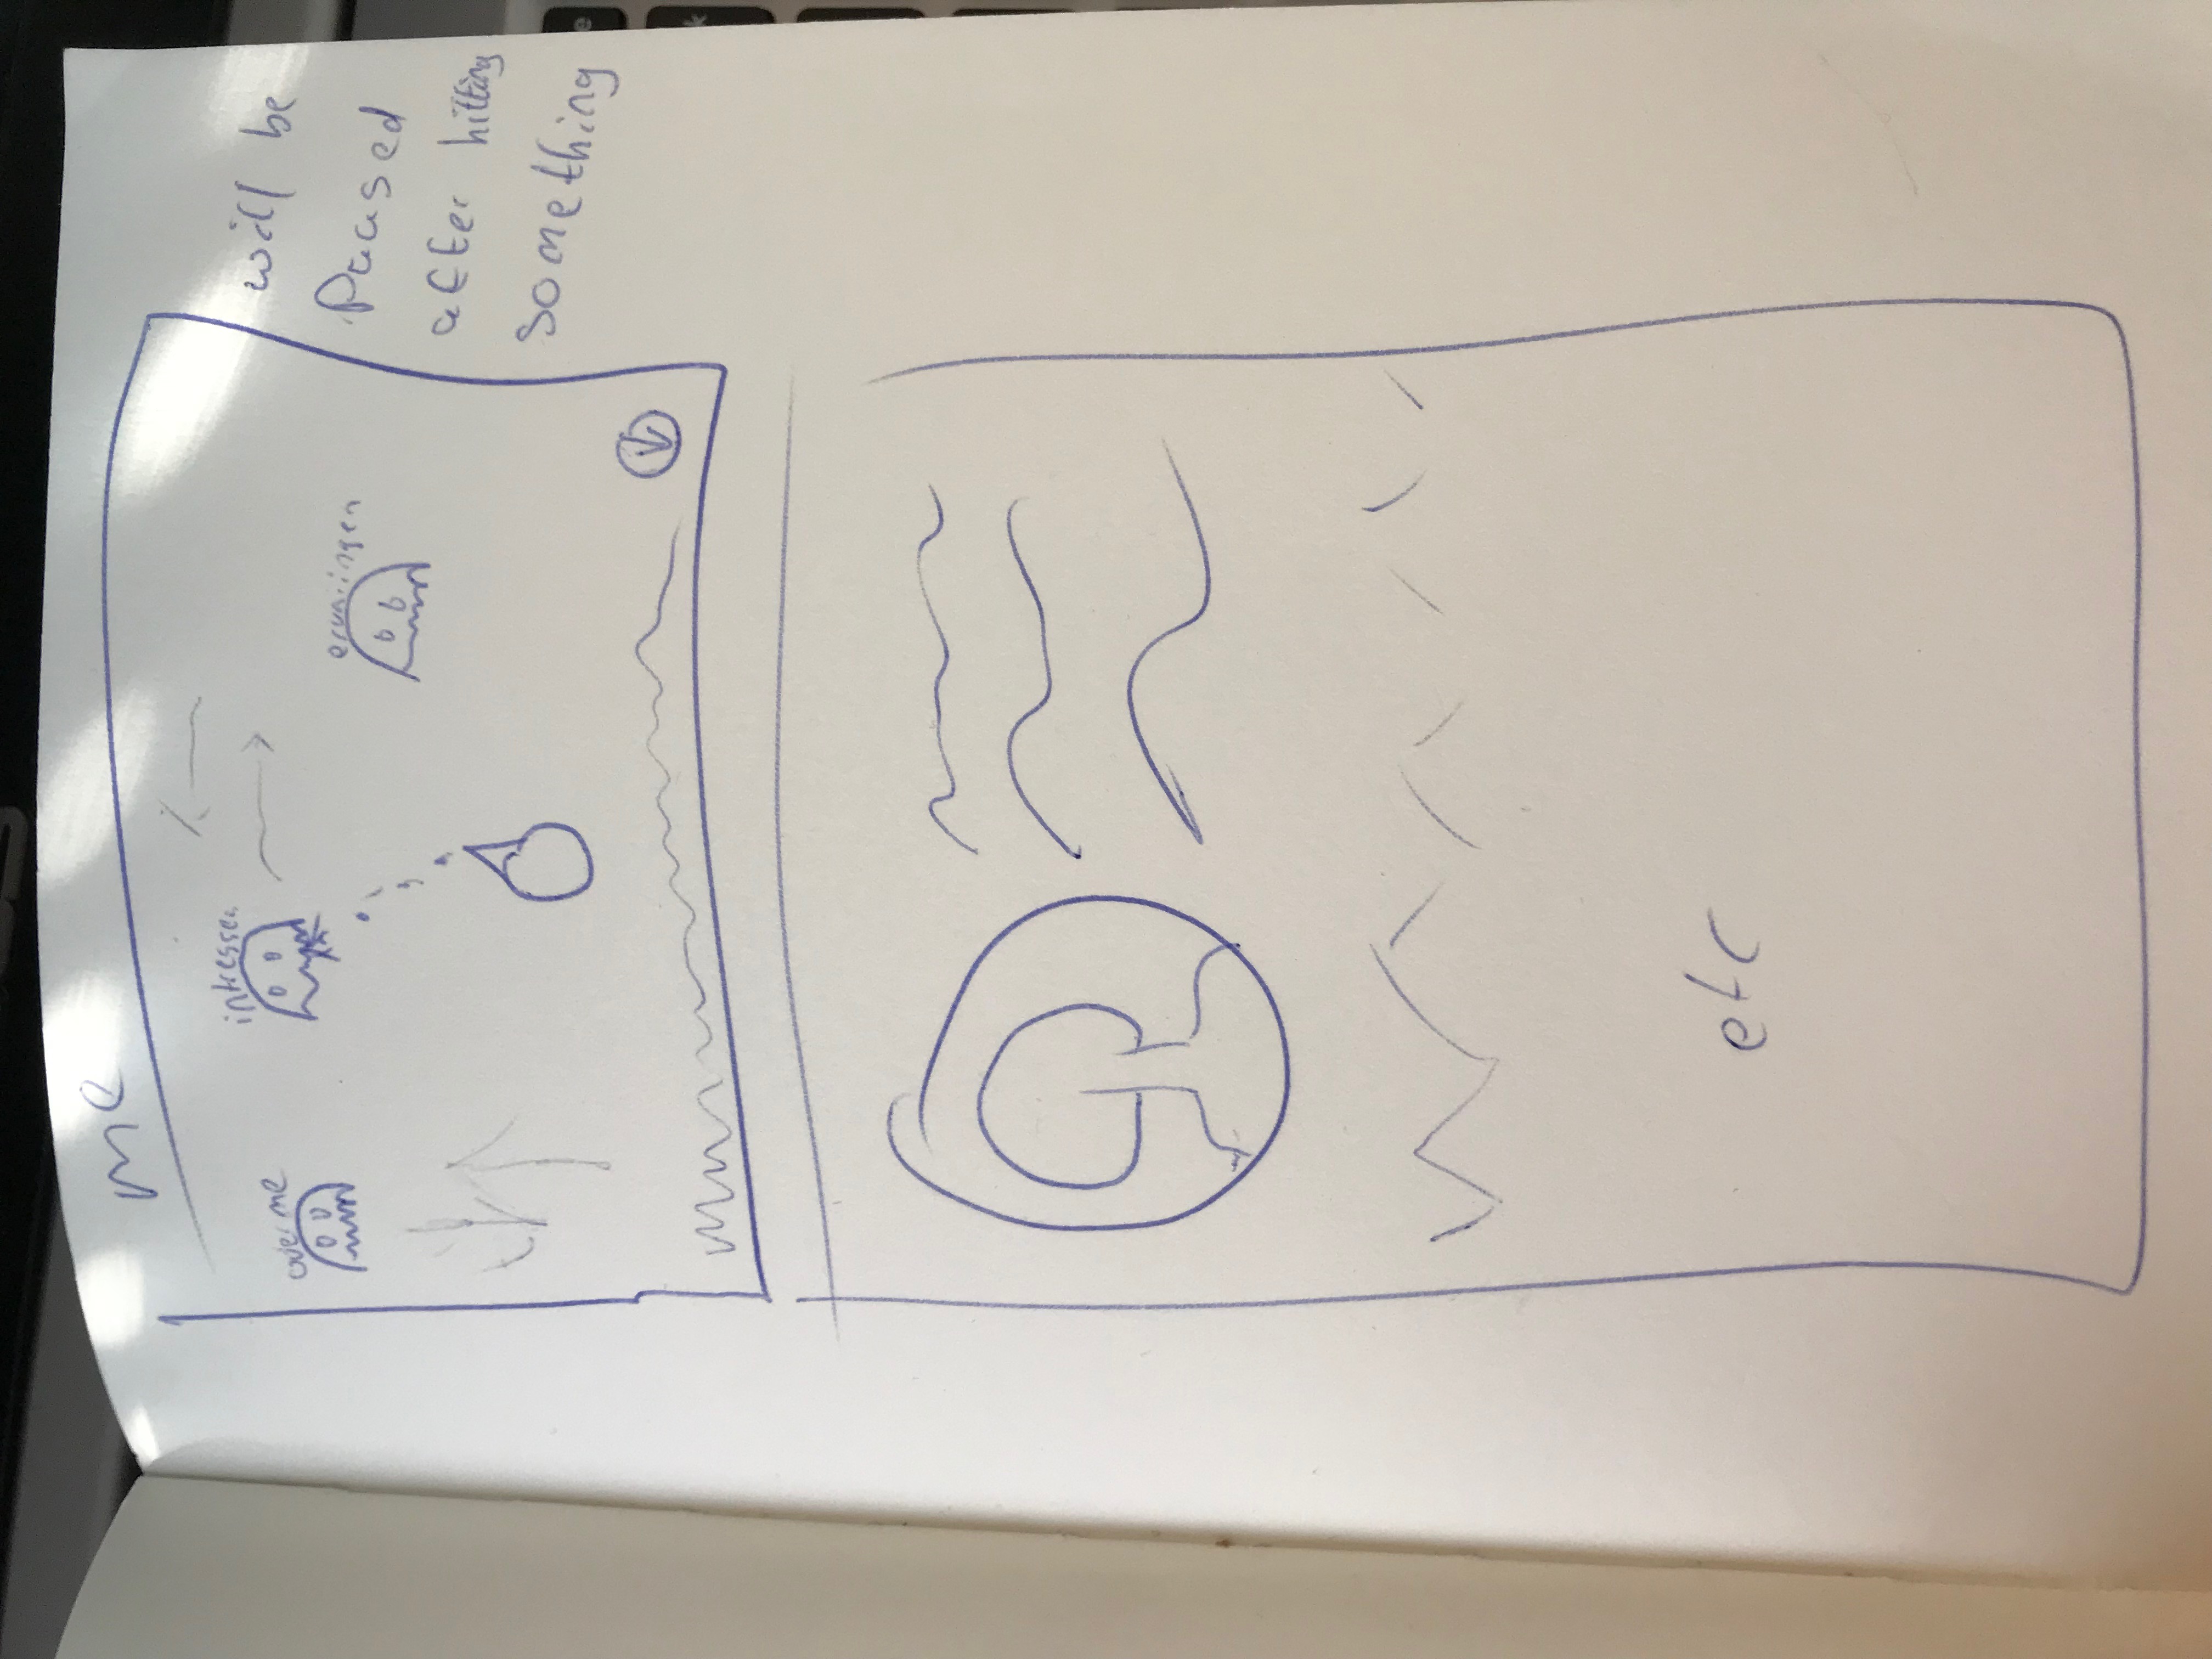 me
over me
intressen
ervaringen
will be
Paused
after hitting
something
etc